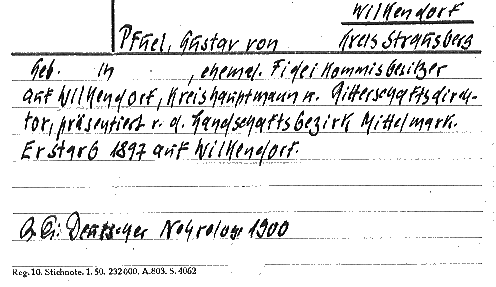 Wilkendorf
Pfuel, Gustav von Kreis Strausberg
Geb. in , ehemal. Fideikommisbesitzer
auf Wilkendorf, Kreishauptmann u. Ritterschaftsdirek-
tor, präsentiert v. d. Landschaftsbezirk Mittelmark.
Er starb 1897 auf Wilkendorf.
Deutscher Nekrologe 1900
Reg. 10. Stichnote. 1. 50. 232000. A. 803. S. 4062